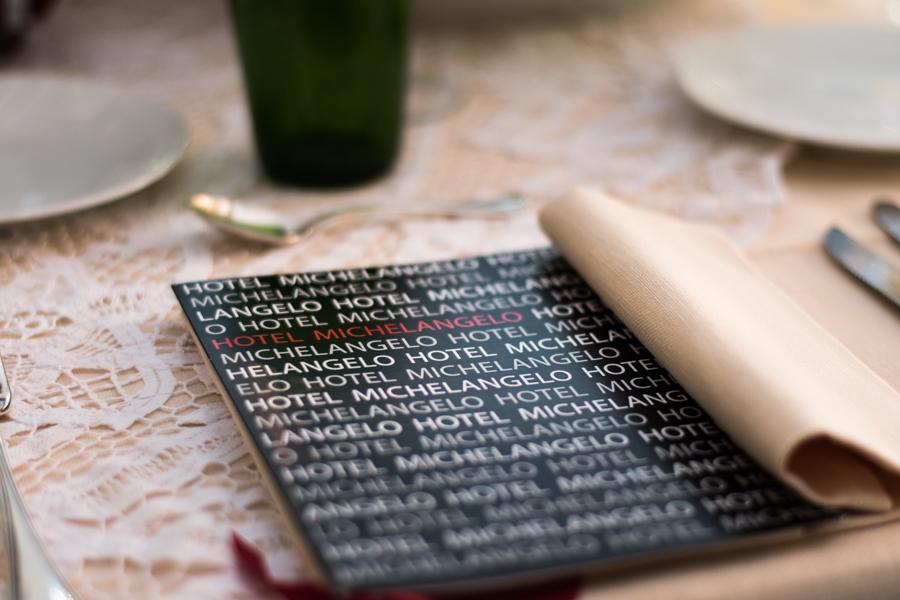 HOTEL MICHELANGELO HOTEL
MICHELANGELO HOTEL MICHELANGELO
LANGELO HOTEL MICHELANGELO
O HOTEL MICHELANGELO HOTEL
HOTEL MICHELANGELO HOTEL
MICHELANGELO HOTEL
HELANGELO HOTEL MICHELANGELO
ELO HOTEL MICHELANGELO HOTEL
HOTEL MICHELANGELO HOTEL
MICHELANGELO HOTEL
LANGELO HOTEL MICHELANGELO
O HOTEL MICHELANGELO HOTEL
HOTEL MICHELANGELO HOTEL
MICHELANGELO HOTEL
ANGELO HOTEL MICHELANGELO
O HOTEL MICHELANGELO HOTEL
HOTEL MICHELANGELO HOTEL
MICHELANGELO HOTEL